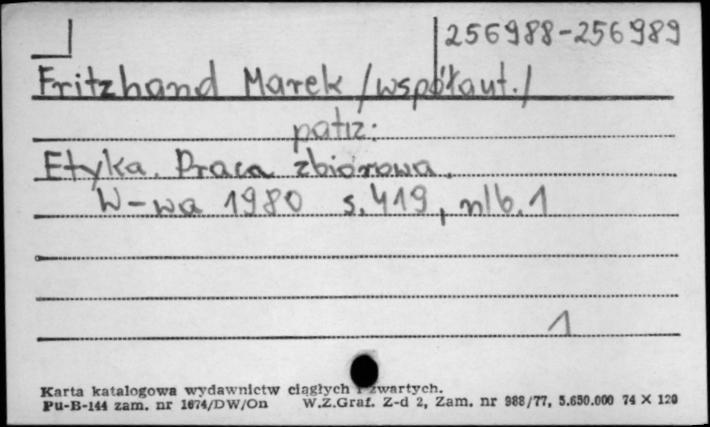 256988-256989
Fritzhand Marek /współaut./
patrz:
Etyka. Praca zbiorowa.
W-wa 1980 s. 419, nlb. 1
1
Karta katalogowa wydawnictw ciągłych i zwartych.
Pu-B-144 zam. nr 1674/DW/On W.Z.Graf. Z-d 2, Zam. nr 988/77, 5.650.000 74 X 120